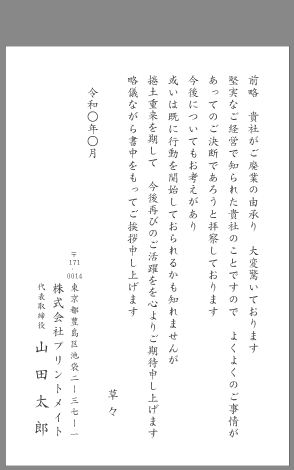 前略　貴社がご廃業の由承り　大変驚いております
堅実なご経営で知られた貴社のことですので　よくよくのご事情が
あってのご決断であろうと拝察しております
今後についてもお考えがあり
或いは既に行動を開始しておられるかも知れませんが
捲土重来を期して　今後再びのご活躍を心よりご期待申し上げます
略儀ながら書中をもってご挨拶申し上げます
草々
令和〇年〇月
〒171-0014 東京都豊島区池袋二ー三七ー一
株式会社プリントメイト
代表取締役　山田太郎